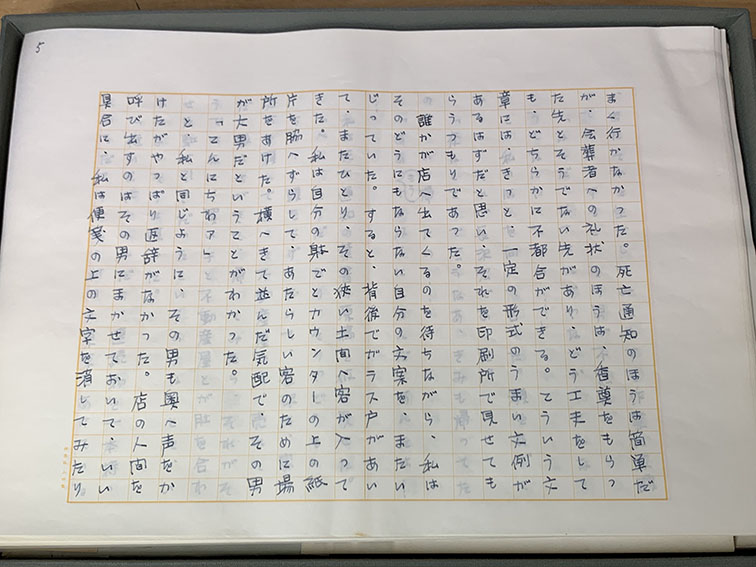 5
まく行かなかった。死亡通知のほうは簡単だ
が、会葬者への礼状のほうは、香奠をもらっ
た先とそうでない先があり、どう工夫をして
も、どちらかに不都合ができる。こういう文
章には、きっと、一定の形式のうまい文例が
あるはずだと思い、それを印刷所で見せても
らうつもりであった。
誰かが店へ出てくるのを待ちながら、私は
そのどうにもならない自分の文案を、まだい
じっていた。すると、背後でガラス戸があい
て、またひとり、その狭い土間へ客が入って
きた。私は自分の躰とカウンターの上の紙
片を脇へずらして、あたらしい客のために場
所をあけた。横へきて並んだ気配で、その男
が大男だということがわかった。
「こんにちわァ」
と、私と同じように、その男も奥へ声をか
けたがやっぱり返辞がなかった。店の人間を
呼び出すのはその男にまかせておいて、いい
具合に、私は便箋の上の文字を消してみたり